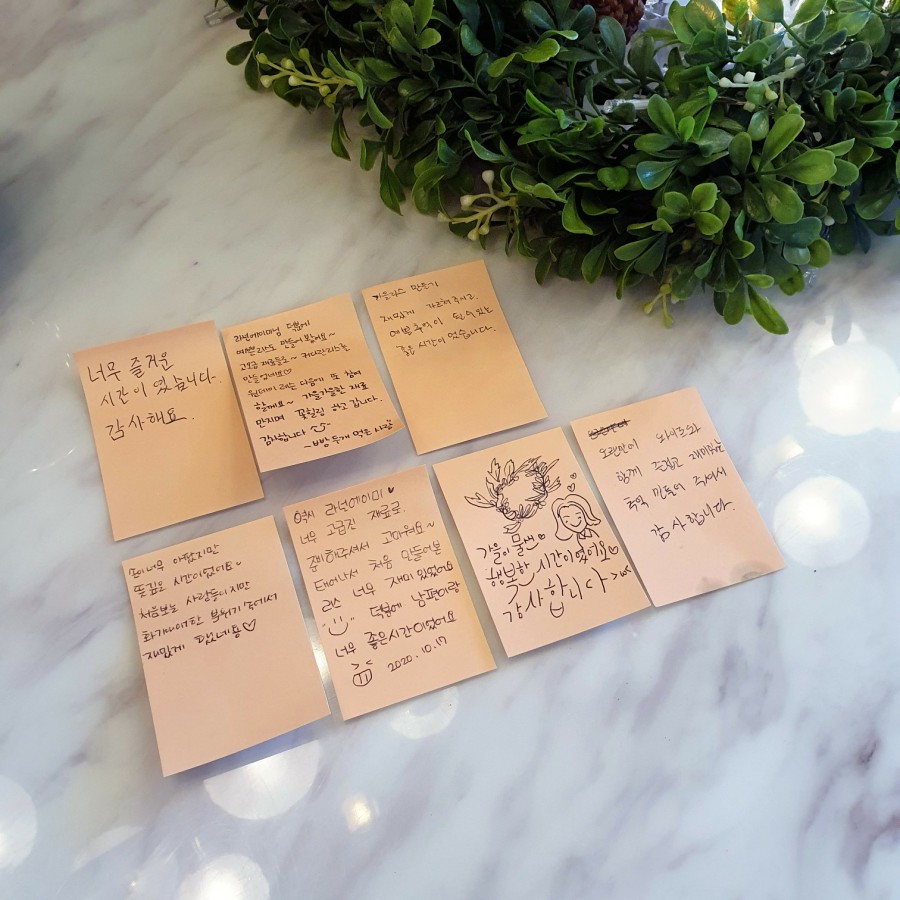 너무 즐거운
시간이 였습니다.
감사해요.
라넌에이미님 덕분에
예쁜리스도 만들어 봤어요~
고오급 재료들로~ 커다란리스를
만들었네요♡
원데이 래는 다음에 또 참여
할께요~ 가을가을한 재료
만지며 꽃힐링 하고 갑니다.
감사합니다
~빵두개 먹은 사람
가을리스 만들기
재밌게 가르쳐주시고,
예쁜 추억이 될 수 있는
좋은 시간이 었습니다.
오랜만에 와이프와
함께 즐겁고 재미있는
추억 만들어 주셔서
감사합니다.
가을이 물씬♥
행복한 시간이었어요♡
감사합니다 >ω<
역시 라넌에이미♥
너무 고급진 재료로
준비해주셔서 고마워요~
태어나서 처음 만들어본
리스 너무 재미있었어요
덕분에 남편이랑
너무 좋은시간이었어요
2020.10.17
너무 아팠지만
뜻깊은 시간이었어요
처음보는 사람들이지만
화기애애한 분위기 속에서
재밌게 했네용♡